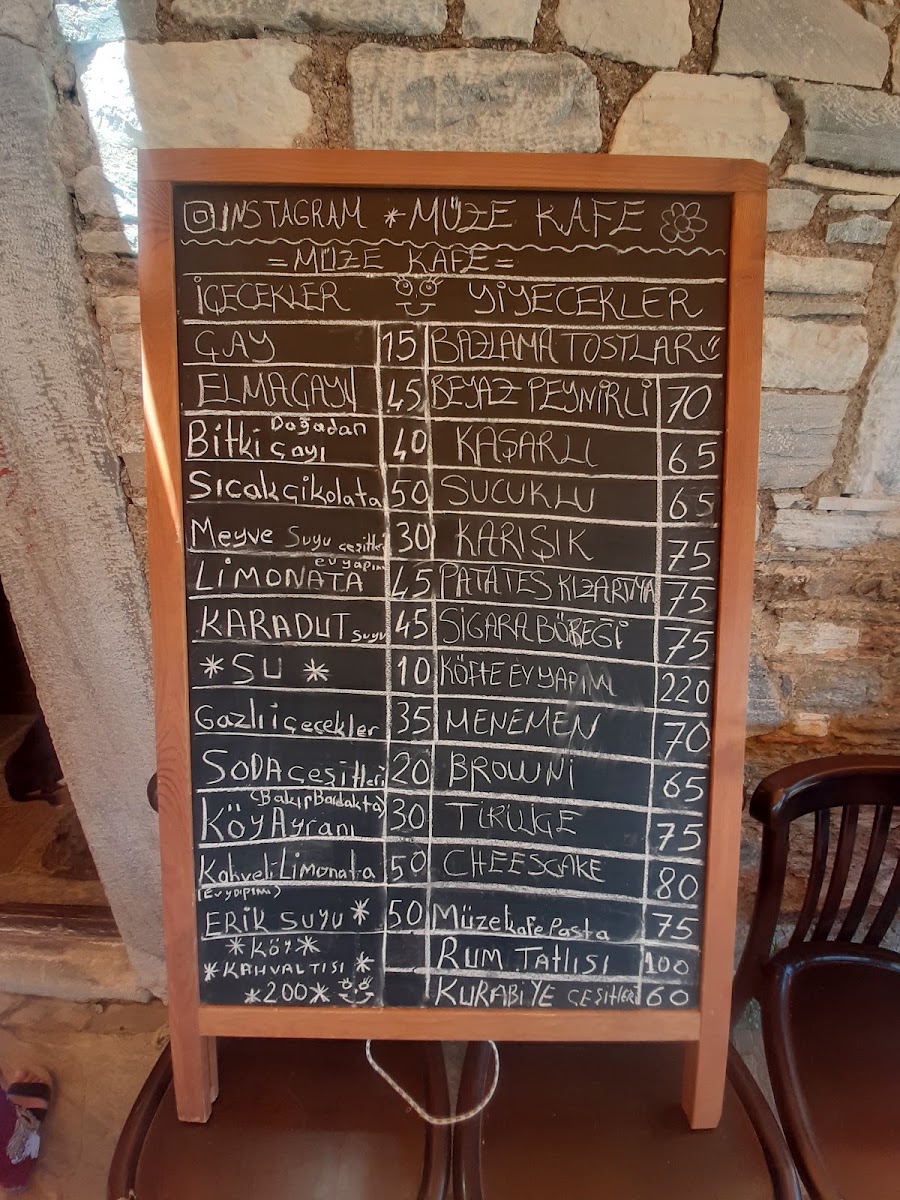 INSTAGRAM *MÜZE KAFE
=MÜZE KAFE=
İÇECEKLER YİYECEKLER
ÇAY 15 BAZLAMA TOSTLAR
ELMAÇAYI 45 BEYAZ PEYNİRLİ 70
Bitki Doğadan Çayı 40 KAŞARLI 65
Sıcakçikolata 50 SUCUKLU 65
Meyve Suyu çeşitleri 30 KARIŞIK 75
LİMONATA evyapımı 45 PATATES KIZARTMA 75
KARADUT suyu 45 SİGARA BÖREĞİ 75
*SU* 10 KÖFTE EV YAPIMI 220
Gazlı içecekler 35 MENEMEN 70
SODA çeşitleri 20 BROWNİ 65
(Bakır Bardakta)
Köy Ayranı 30 TİRİLİÇE 75
Kahveli Limonata 50 CHEESCAKE 80
(Evyapımı)
ERİK SUYU* 50 Müzekafe Pasta 75
*KÖY* RUM TATLISI 100
*KAHVALTISI*
*200* KURABİYE ÇEŞİTLERİ 60